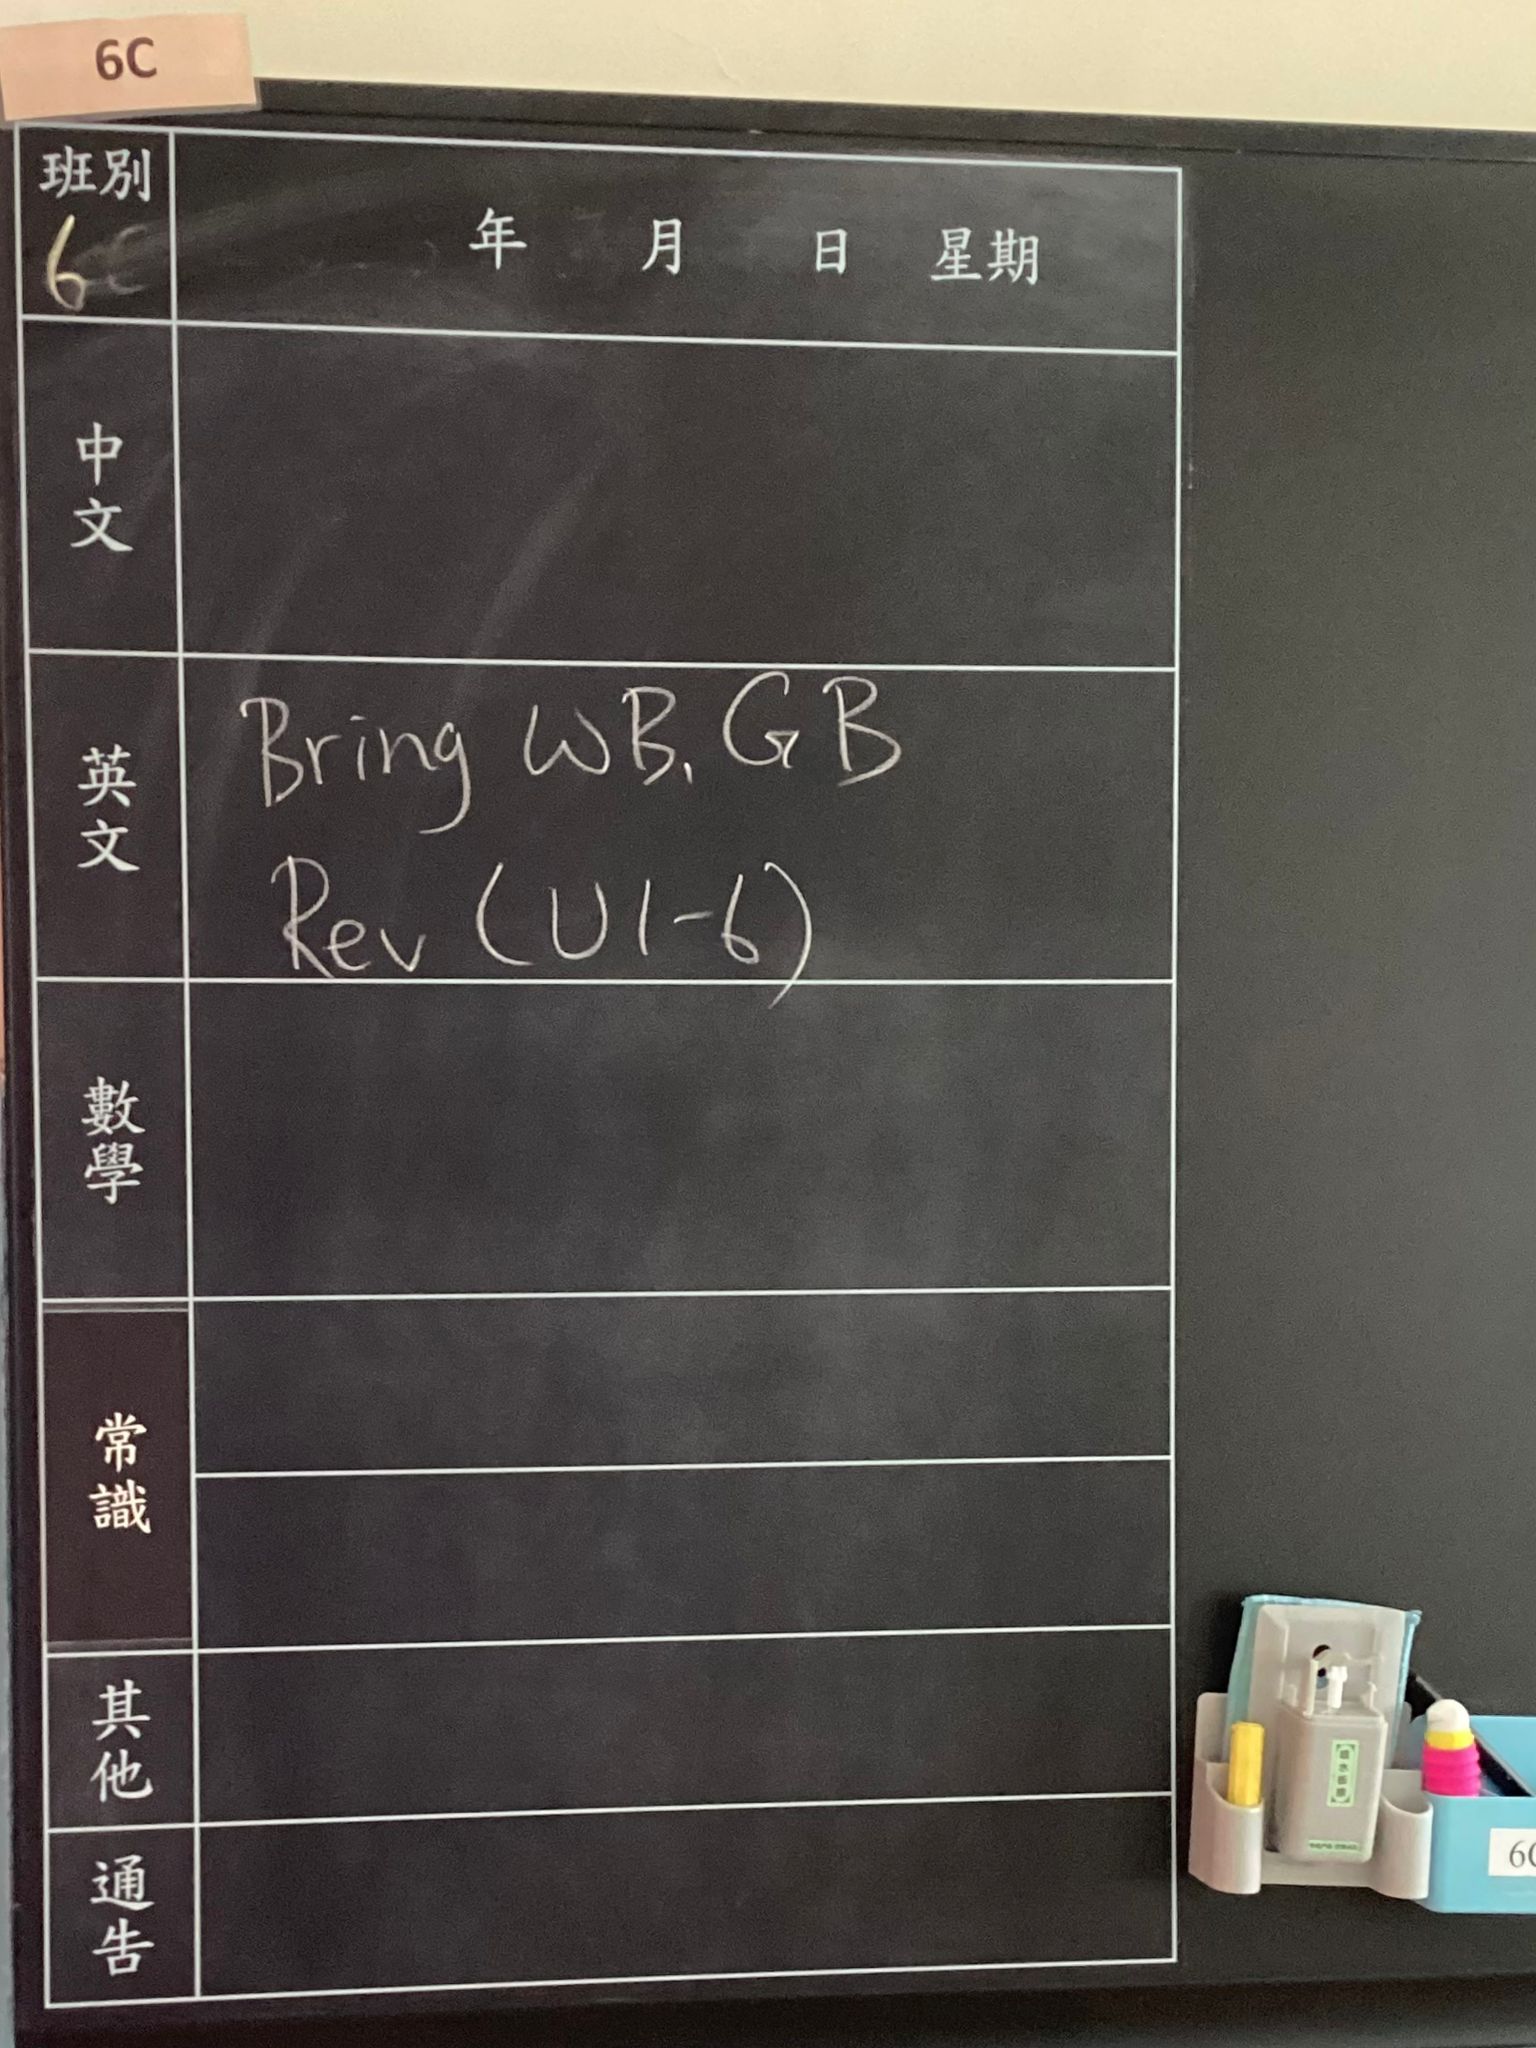 6C
班別
6C
年 月 日 星期
中文
英文
Bring WB, GB
Rev (U1-6)
數學
常識
其他
通告